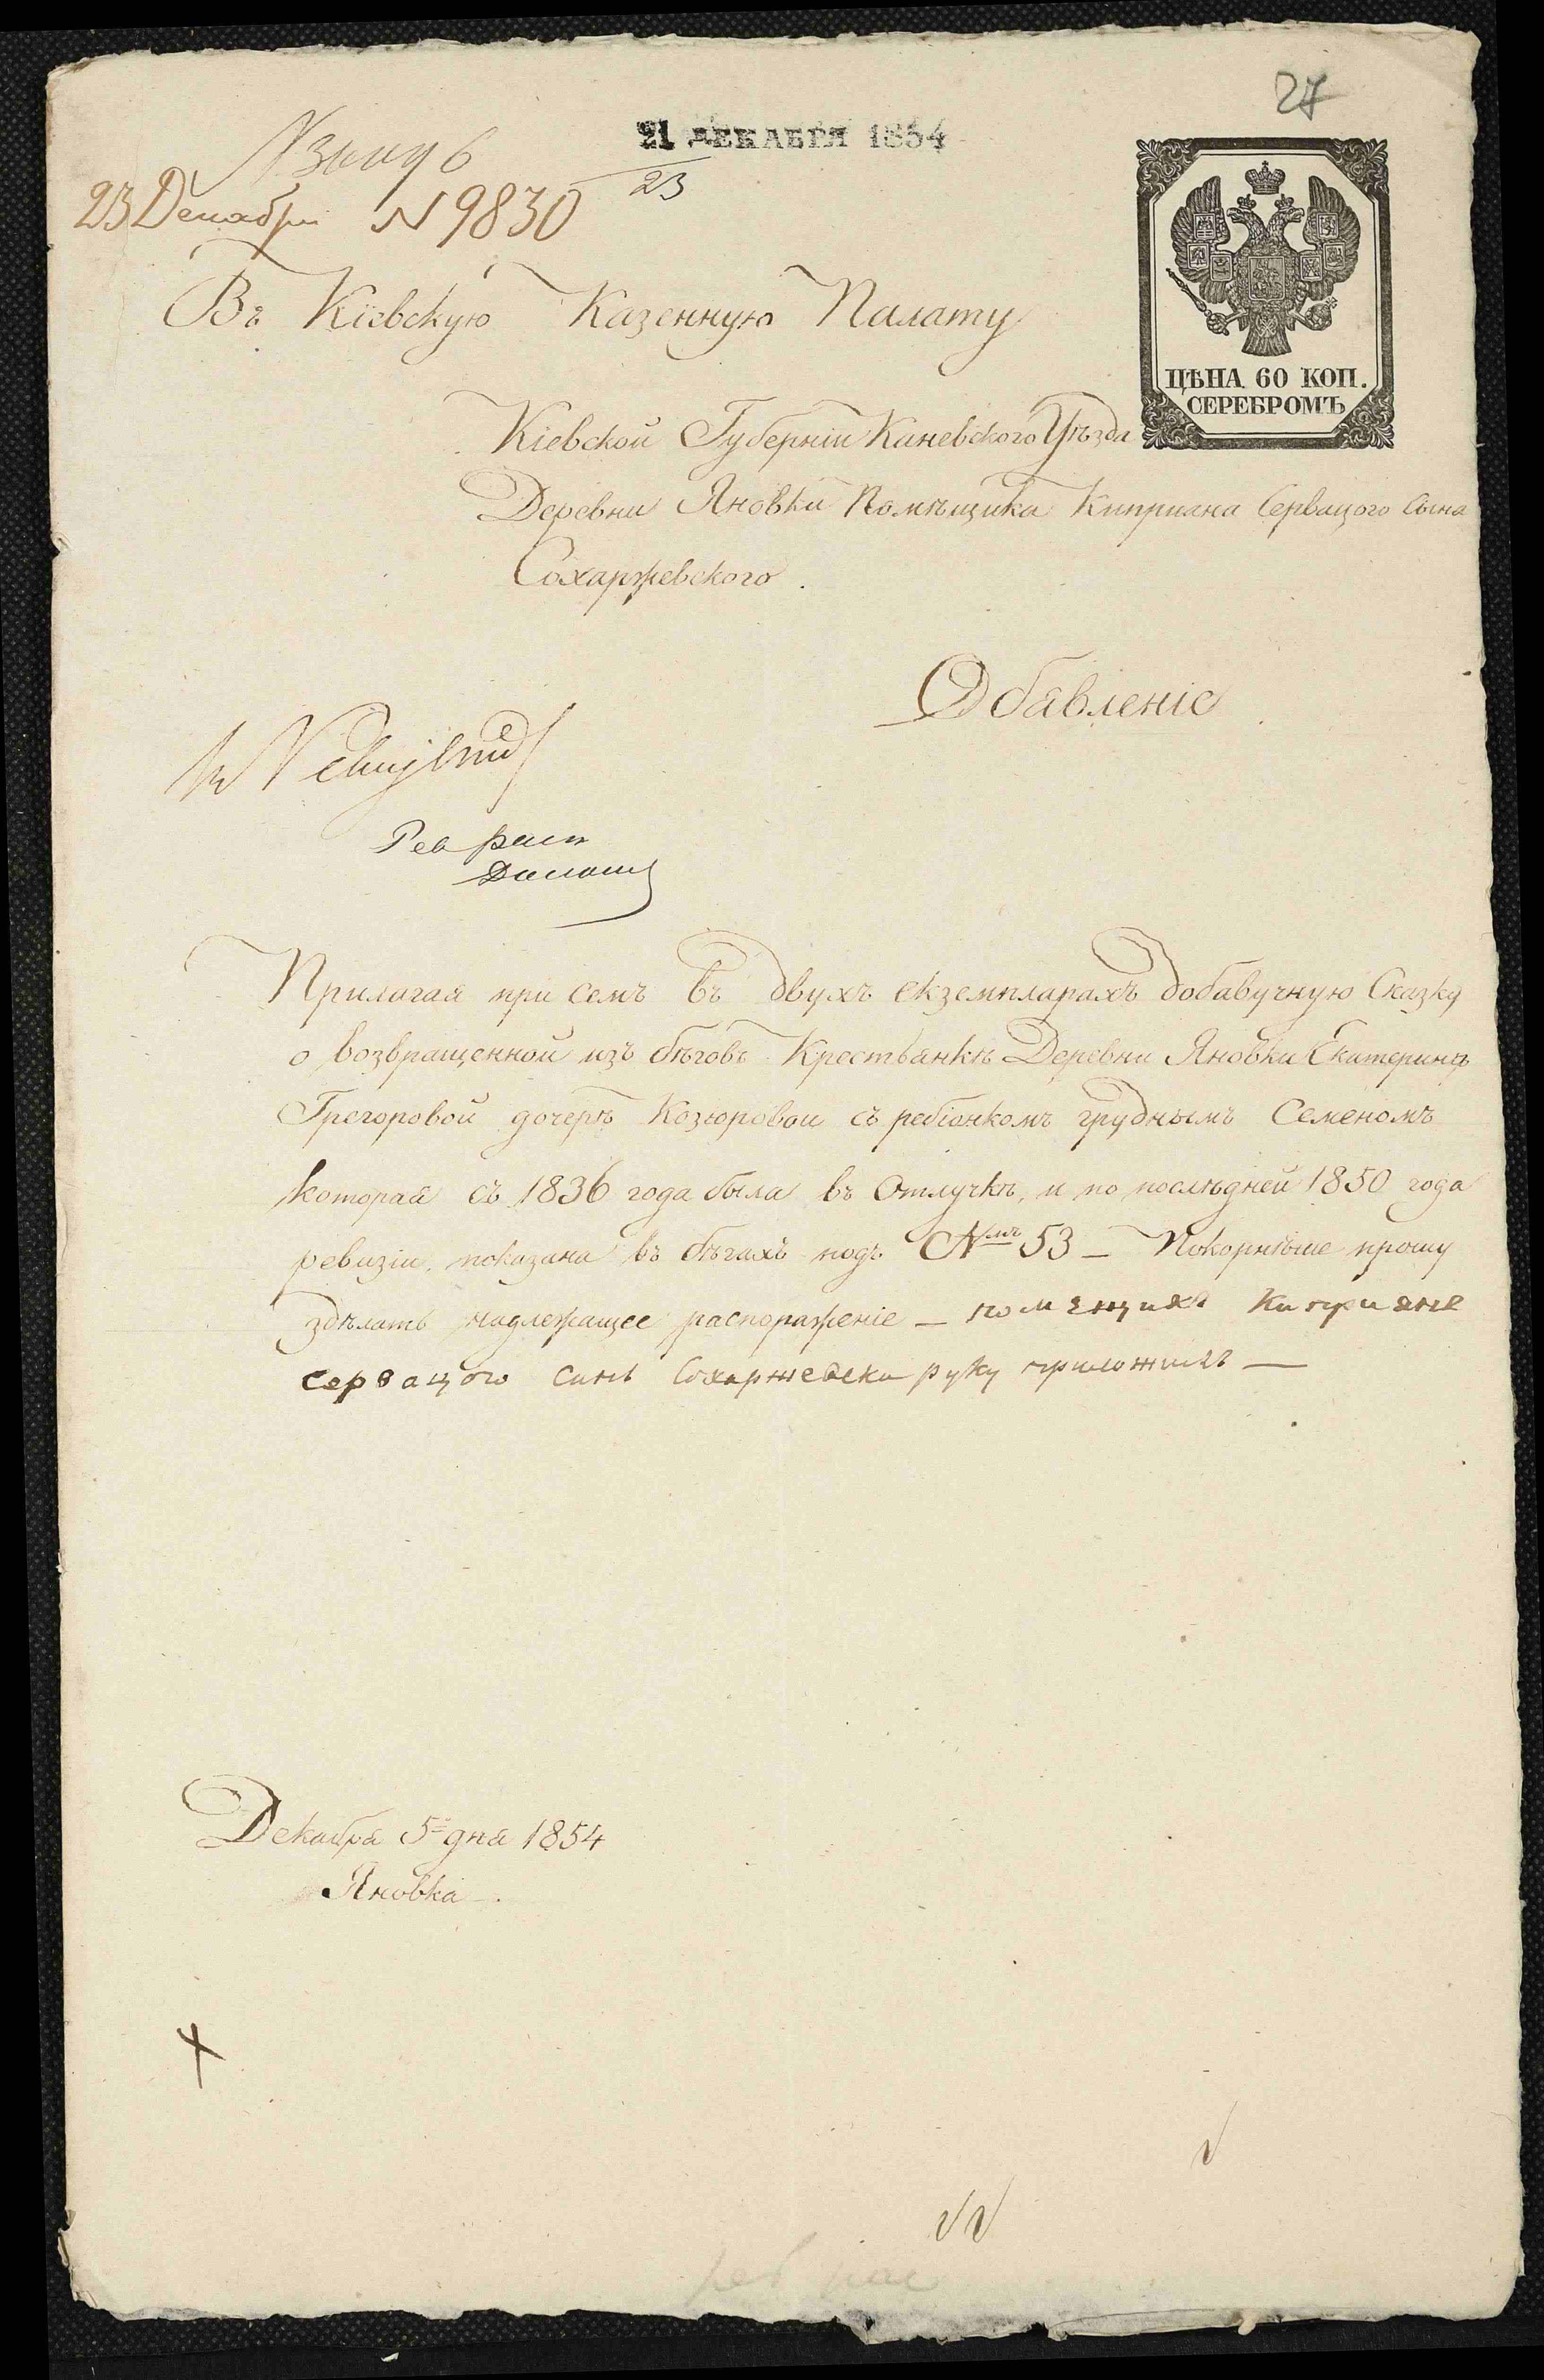 27
21 ДЕКАБРЯ 1854
23
23 Декабря N 9830
Въ Кіевскую Казенную Палату
ЦѢНА 60 КОП.
СЕРЕБРОМЪ
Кіевской Губерніи Каневского Уѣзда
Деревни Яновки Помѣщика Киприана Сервацого Сына
Сохаржевского.
Обявленіе
Рев
Прилагая при семъ въ двухъ екземпларахъ добавучную Сказку
о возвращенной изъ бѣговъ Крестьянкѣ Деревни Яновки Екатеринѣ
Грегоровой дочерѣ Козюровой съ ребіонкомъ груднымъ Семеномъ
которая съ 1836 года была въ Отлучкѣ, и по послѣдней 1850 года
ревизіи показана въ бѣгахъ подъ №мъ 53 – Покорнѣйше прошу
здѣлать надлежащее распоряженіе – помещикъ Киприяне
сервацого синъ Сохаржевски руку приложилъ –
Декабря 5го дня 1854
Яновка
рев рас